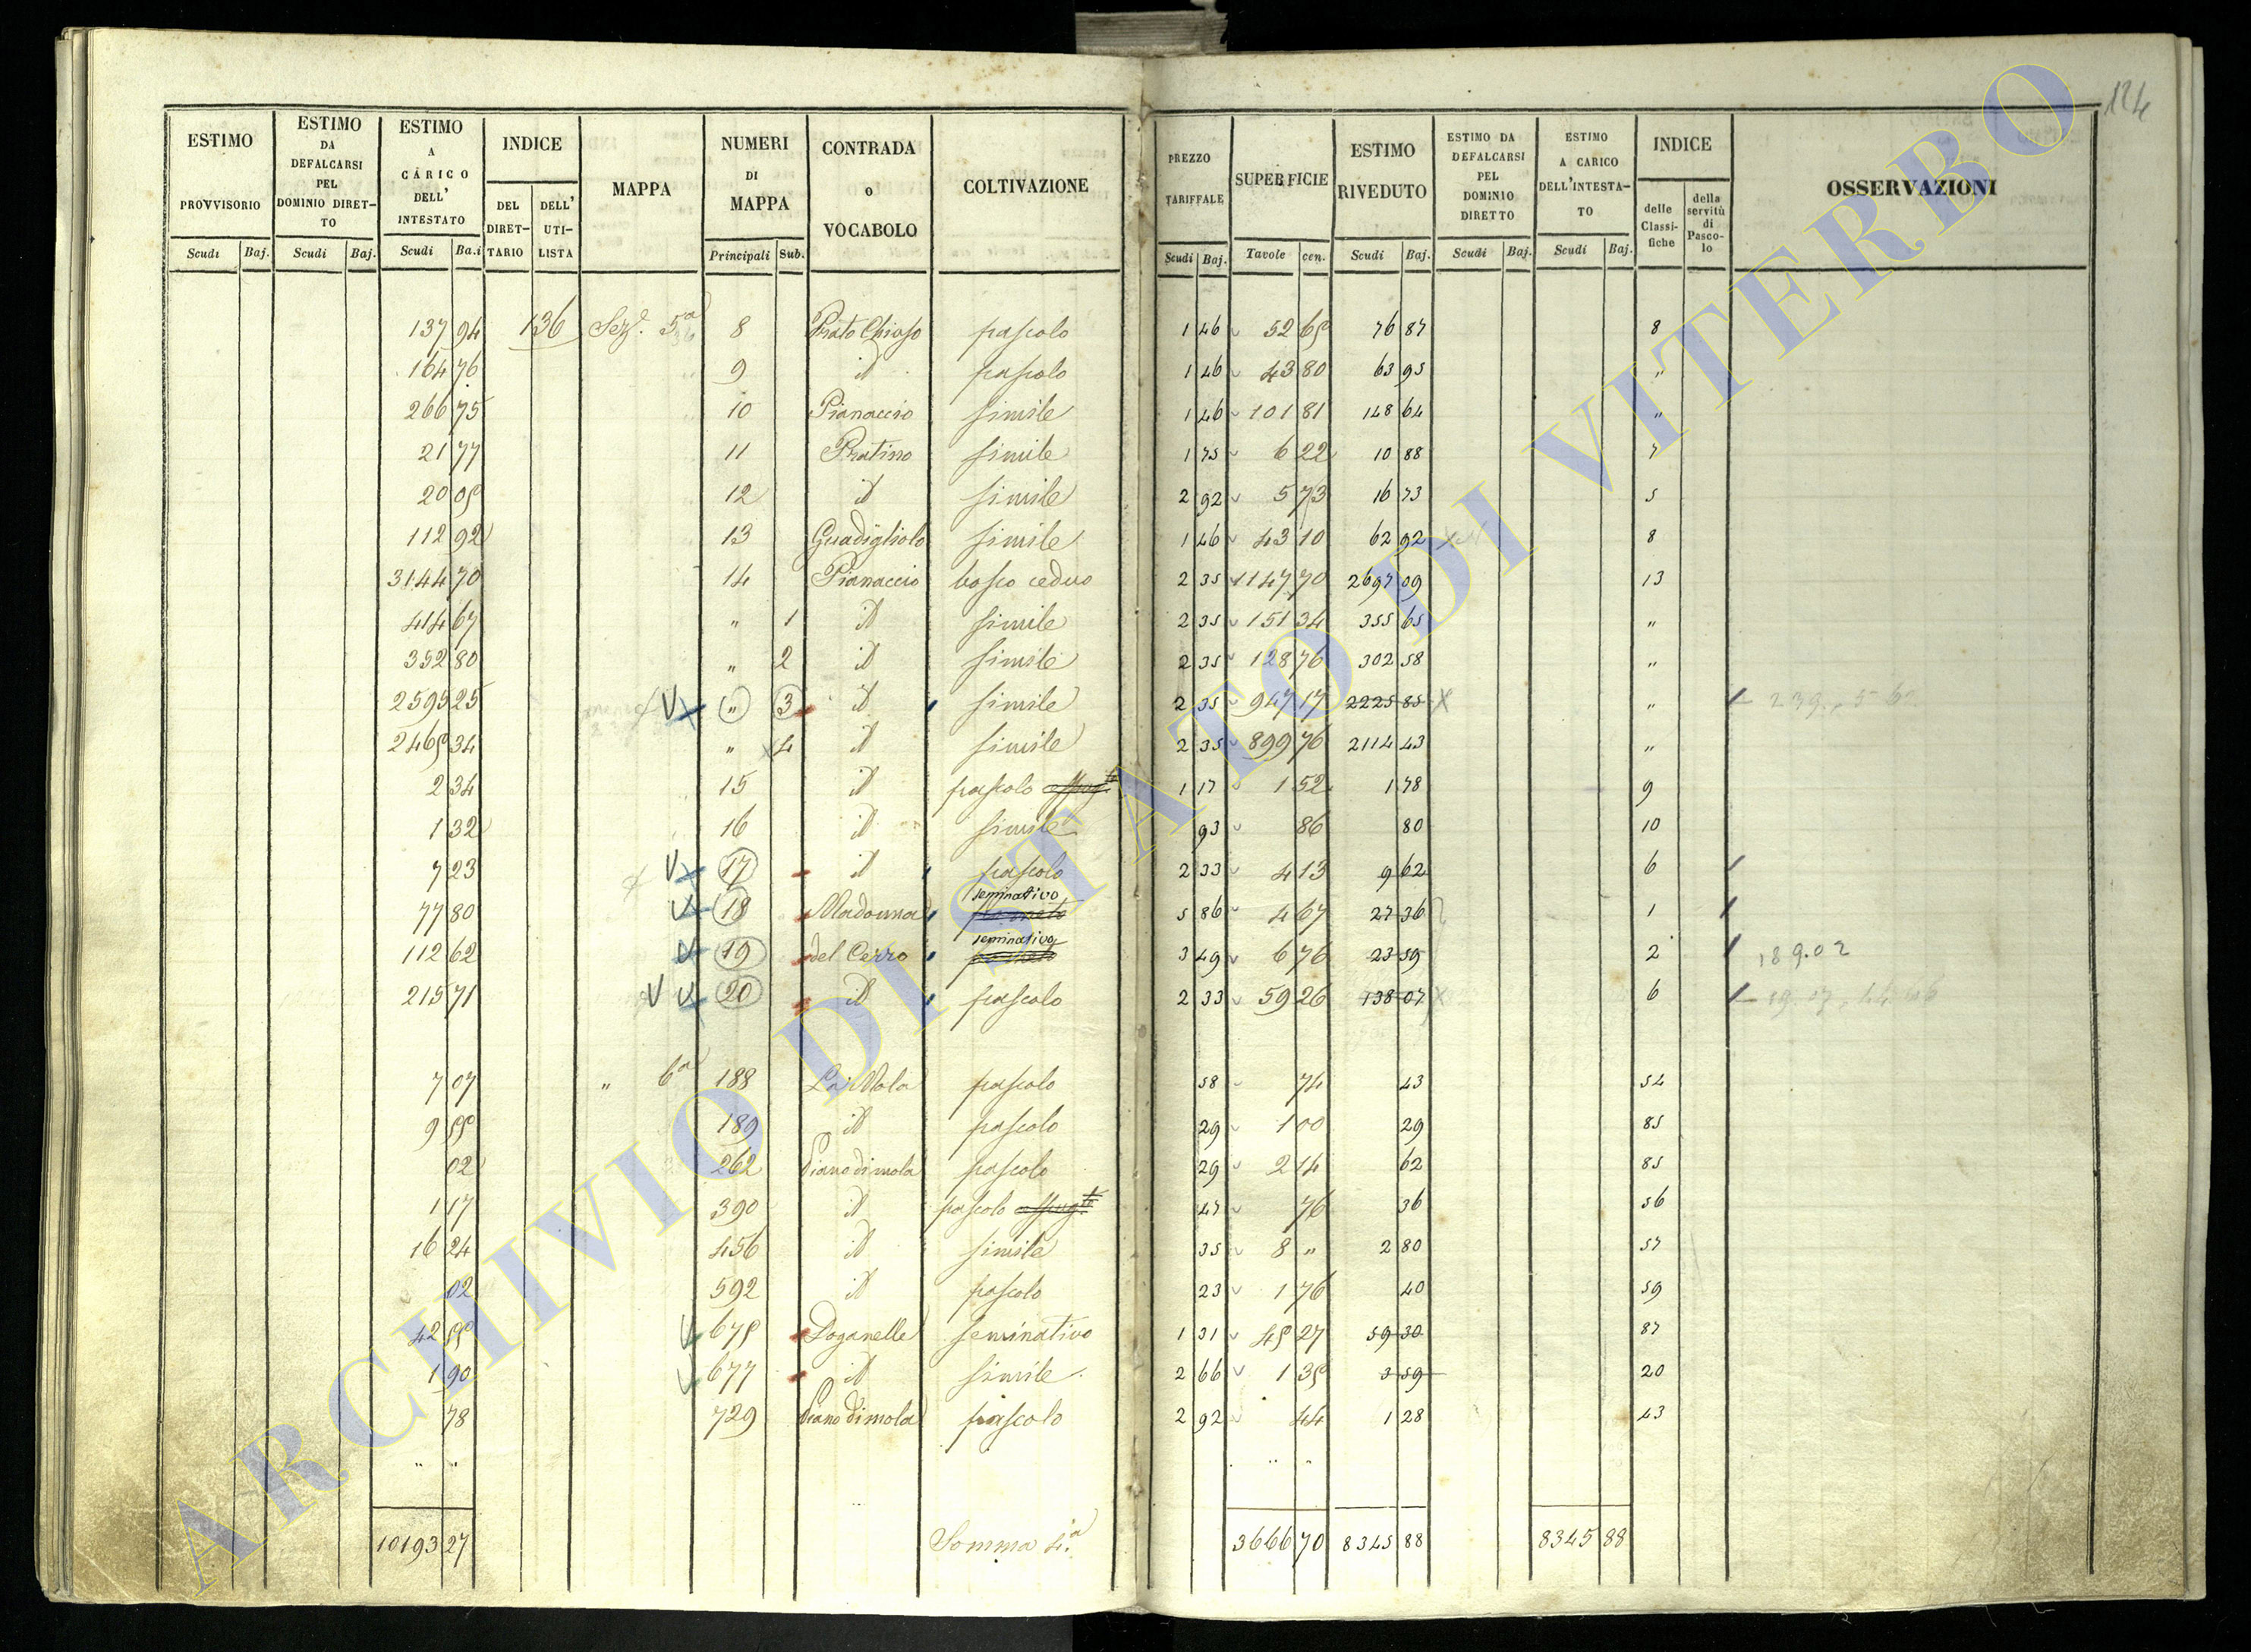 124
ESTIMO PROVVISORIO Scudi Baj.
ESTIMO DA DEFALCARSI PEL DOMINIO DIRETTO Scudi Baj.
ESTIMO A CARICO DELL' INTESTATO Scudi Ba.i
INDICE DEL DIRETTARIO DELL' UTILISTA
MAPPA
NUMERI DI MAPPA Principali Sub.
CONTRADA o VOCABOLO
COLTIVAZIONE
PREZZO TARIFFALE Scudi Baj.
SUPERFICIE Tavole cen.
ESTIMO RIVEDUTO Scudi Baj.
ESTIMO DA DEFALCARSI PEL DOMINIO DIRETTO Scudi Baj.
ESTIMO A CARICO DELL'INTESTATO Scudi Baj.
INDICE delle Classifiche della servitù di Pascolo
OSSERVAZIONI
137 94 136 Sez.e 5a 8 Prato Chiuso pascolo 1 46 52 65 76 87 8
164 76 9 id pascolo 1 46 43 80 63 95 "
266 75 10 Pianaccio simile 1 46 101 81 148 64 "
21 77 11 Pratino simile 1 75 6 22 10 88 7
20 05 12 id simile 2 92 5 73 16 73 5
112 92 13 Guadigliolo simile 1 46 43 10 62 92 8
3144 70 14 Pianaccio bosco ceduo 2 35 1147 70 2697 09 13
414 67 " 1 id simile 2 35 151 34 355 65 "
352 80 " 2 id simile 2 35 128 76 302 58 "
2595 25 " 3 id simile 2 35 947 17 2225 85 "
2465 34 " 4 id simile 2 35 899 76 2114 43 "
2 34 15 id pascolo 1 17 1 52 1 78 9
1 32 16 id simile 93 86 80 10
7 23 17 id pascolo 2 33 4 13 9 62 6
77 80 18 Madonna seminativo 5 86 4 67 27 36 1
112 62 19 del Cerro seminativo 3 49 6 76 23 59 2 189.02
215 71 20 id pascolo 2 33 59 26 138 07 6
7 07 " 6a 188 La Mola pascolo 58 74 43 54
9 55 189 id pascolo 29 1 00 29 85
02 262 Piano di mola pascolo 29 2 14 62 85
1 17 390 id pascolo 47 76 36 56
16 24 456 id simile 35 8 " 2 80 57
02 592 id pascolo 23 1 76 40 59
42 55 675 Doganelle seminativo 1 31 45 27 59 30 87
1 90 677 id simile 2 66 1 35 3 59 20
78 729 Piano di mola pascolo 2 92 44 1 28 43
" " " "
10193 27 Somma 4.a 3666 70 8345 88 8345 88
ARCHIVIO DI STATO DI VITERBO